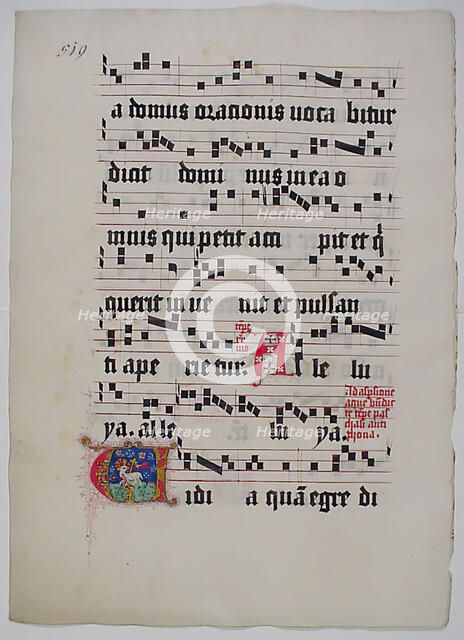 519
a domus orationis voca bitur
dicit domi nus in ea o
mnis qui petit acci pit et q̃
querit in ve nit et pulsan
ti ape rie tur. Al le lu
tẽpe
ya. alle lu ya.
Ad aspsione
aque bñdic
te tẽpe pas
chali anti
phona.
Vidi a quã egre di
Heritage
Heritage
Heritage
Heritage
Heritage
Heritage
Heritage